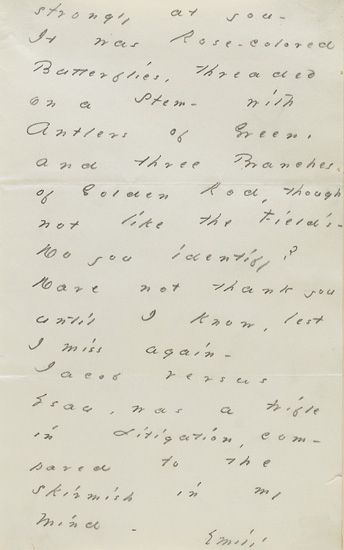 strongly at you -
It was Rose-colored
Butterflies, threaded
on a Stem - with
Antlers of Green,
and three Branches,
of Golden Rod, though
not like the Field's -
Do you identify?
Dare not thank you
until I know, lest
I miss again -
Jacob versus
Esau, was a trifle
in Litigation, com-
pared to the
Skirmish in my
Mind -
Emily